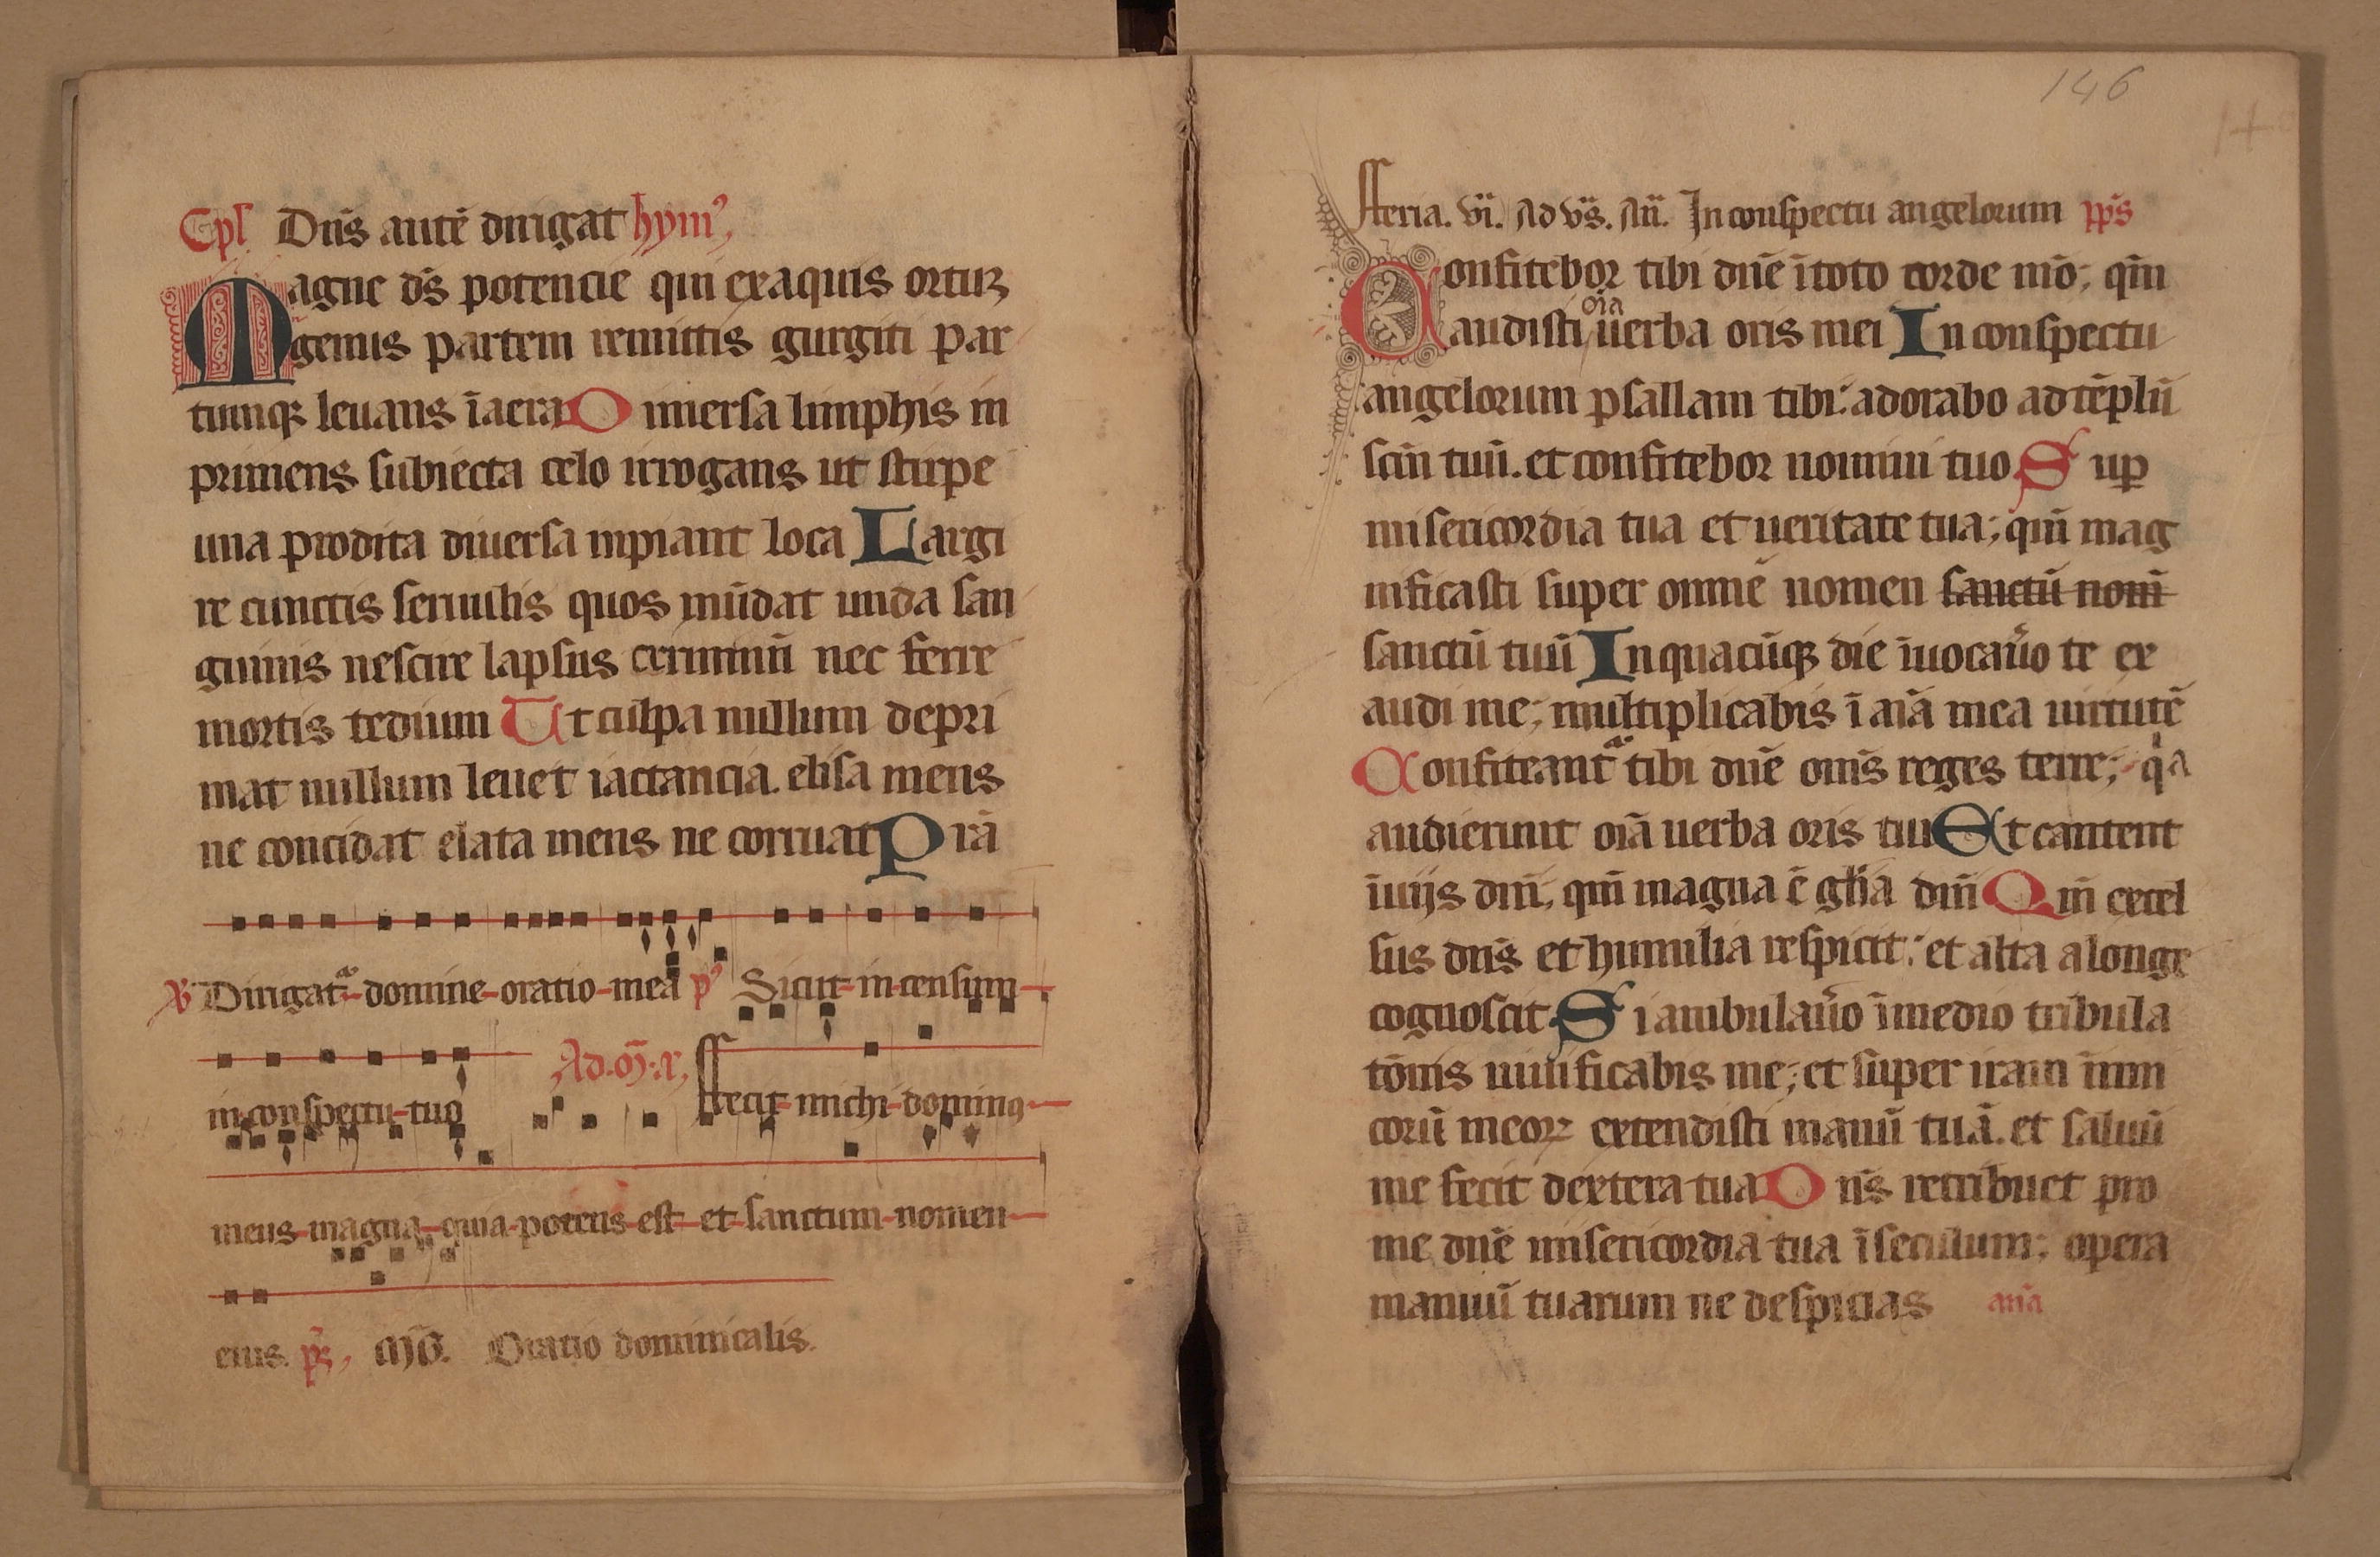 Cpl Dn̄s autē dirigat hymꝰ
Magne ds̄ potencie qui ex aquis ortuꝫ
genus partem remittis gurgiti par
timqꝫ leuans ī aera Dimersa limphis in
primens subiecta celo irrogans ut stirpe
una prodita diuersa rapiant loca Largi
re cunctis seruulis quos mūdat unda san
guinis nescire lapsus criminū nec ferre
mortis tedium Ut culpa nullum depri
mat nullum leuet iactancia. elisa mens
ne concidat elata mens ne corruat P rā
℣ Dirigatᷣ domine oratio mea pꝰ Sicut incensum
in conspectu tuo Ad. m̄. a. ffecit michi dominꝰ
meus magna quia potens est et sanctum nomen
eius. ps̄, Mḡ. Oratio dominicalis.
146
fferia. vi. Ad vs̄. An̄. In conspectu angelorum pp̄s
Confitebor tibi dn̄e ī toto corde mō; qm̄
audisti oīa uerba oris mei In conspectu
angelorum psallam tibi: adorabo ad tēplū
scm̄ tuū. et confitebor nomini tuo Suꝑ
misericordia tua et ueritate tua; qm̄ mag
nificasti super omne nomen sanctū nom̄
sanctū tuū In quacūqꝫ die īuocaũo te ex
audi me; multiplicabis ī aīa mea uirtutē
Confiteantᷣ tibi dn̄e om̄s reges terre; qͥa
audierunt oīa uerba oris tui Et cantent
ī uijs dn̄i, qm̄ magna ē gl̄ia dn̄i Qm̄ excel
sus dn̄s et humilia respicit: et alta a longe
cognoscit Si ambulaũo ī medio tribula
tōnis uiuificabis me; et super iram inim
corū meoꝝ extendisti manū tuā. et saluū
me fecit dextera tua Dn̄s retribuet pro
me dn̄e misericordia tua ī seculum; opera
manuū tuarum ne despicias an̄a